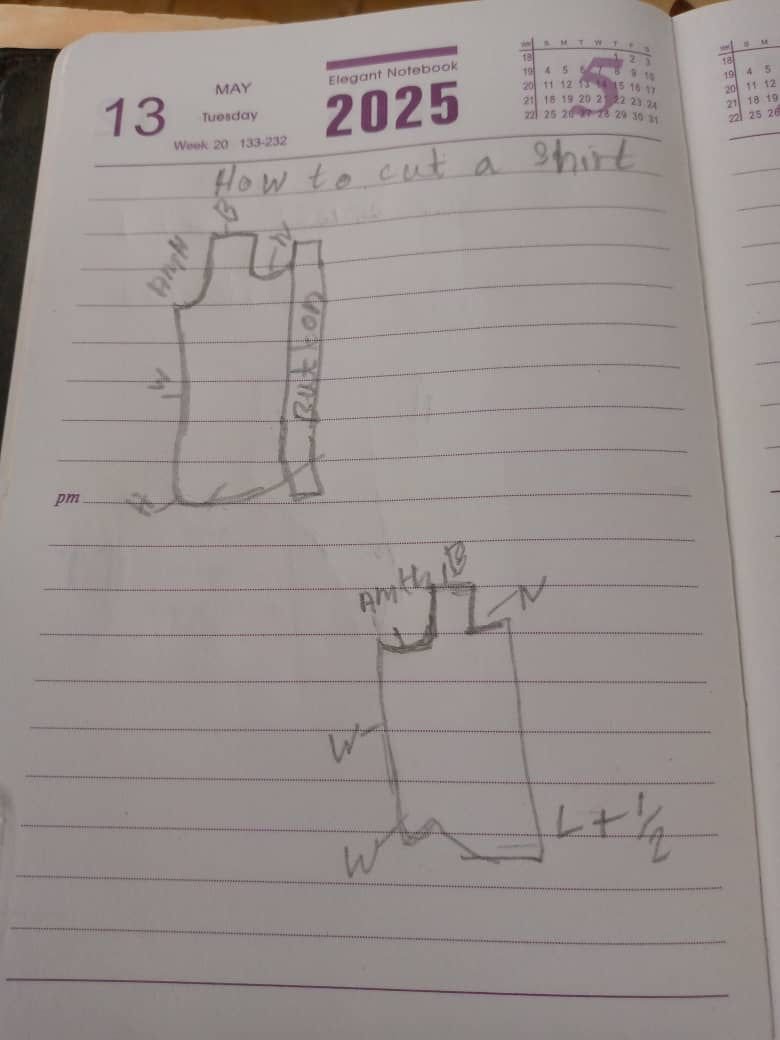 MAY
13 Tuesday
Week 20 133-232
Elegant Notebook
2025
5
WK S M T W T F S
18 1 2 3
19 4 5 6 7 8 9 10
20 11 12 13 14 15 16 17
21 18 19 20 21 22 23 24
22 25 26 27 28 29 30 31
WK S M
18
19 4 5
20 11 12
21 18 19
22 25 26
How to cut a Shirt
B
N
Button
W
H
pm
AMH
B
N
W
W
L + 1/2